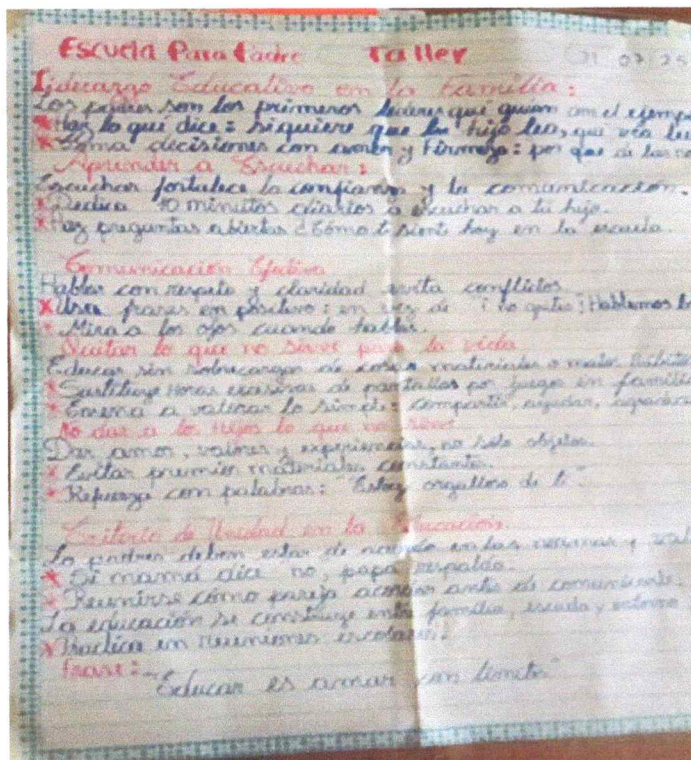 Escuela Para Padre Taller 21 07 25
Liderazgo Educativo en la Familia:
Los padres son los primeros líderes qui guian con el ejemp
* Haz lo qui dice: si quiere que tu hijo lea, que vea le
* Toma decisiones con amor y Firmeza: por que da las no
Aprender a Escuchar:
Escuchar fortalece la confianza y la comunicación.
* Dedica 10 minutos diarios a escuchar a tu hijo.
* Haz preguntas abiertas ¿Cómo te sient hoy en la escuela
Comunicación Efectiva
Hablar con respeto y claridad evita conflictos.
* Usa frases en positivo: en vez de "¡no grites! Hablemos
* Mira a los ojos cuando hables.
Quitar lo que no sirve para la vida
Educar sin sobrecargas de cosas materiales o malos
* Sustituye Horas excesivas de pantallas por juegos en famili
* Enseña a valorar lo simple: compartir, ayudar, agradec
No dar a los hijos lo que no sirve
Dar amor, valores y experiencias, no solo objetos.
* Evitar premios materiales constante.
* Refuerza con palabras: "Estoy orgulloso de ti"
Criterio de Unidad en la Educación
Lo padres deben estar de acuerdo en las normas y
* Si mamá dice no, papá respalda.
* Reunirse como pareja antes de
La educación se construye entre familia, escuela y entorno
* Practica en reuniones escolares.
Frase:
"Educar es amar con limites"